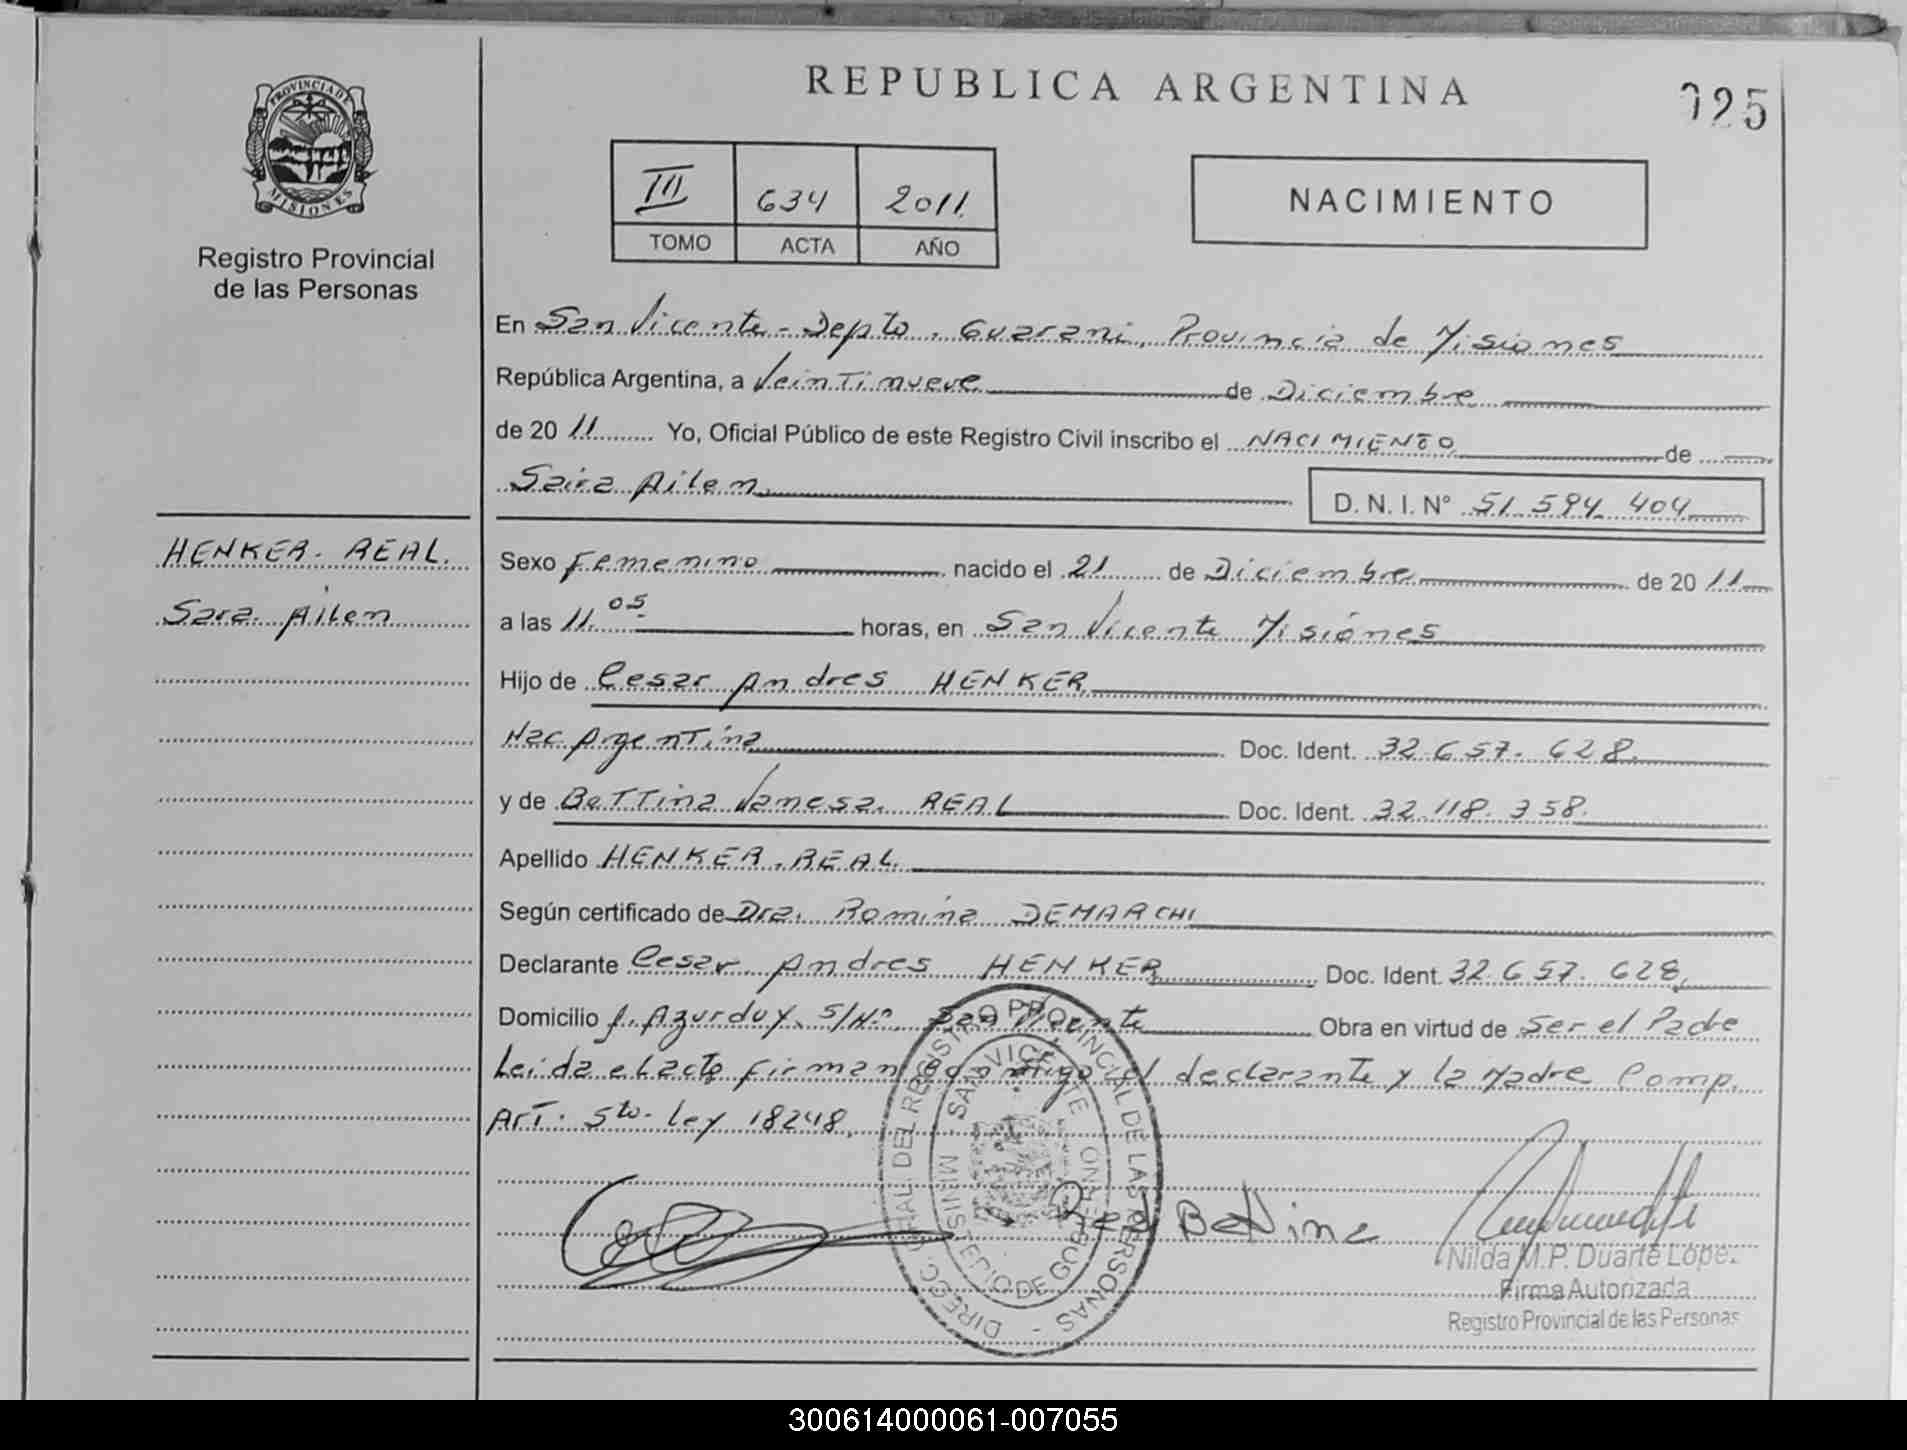 REPUBLICA ARGENTINA
025
PROVINCIA DE
MISIONES
Registro Provincial
de las Personas
III 634 2011
TOMO ACTA AÑO
NACIMIENTO
En San Vicente - Depto. Guarani, Provincia de Misiones
República Argentina, a Veintinueve de Diciembre
de 20 11 Yo, Oficial Público de este Registro Civil inscribo el NACIMIENTO de
Saira Ailen D. N. I. N° 51 594 404
HENKER. REAL.
Sara Ailen
Sexo Femenino nacido el 21 de Diciembre de 20 11
a las 11.05 horas, en San Vicente Misiones
Hijo de Cesar Andres HENKER
Nac Argentina Doc. Ident. 32.657.628.
y de Bettina Vanesa. REAL Doc. Ident. 32.118.358.
Apellido HENKER. REAL.
Según certificado de Dra. Romina DEMARCHI
Declarante Cesar Andres HENKER Doc. Ident. 32.657.628
Domicilio J. Azurduy S/N° San Vicente Obra en virtud de Ser el Padre
Leida el acto firman conmigo el declarante y la Madre Comp.
Art. 5to. Ley 18248.
DIRECC. GRAL. DEL REGISTRO PROVINCIAL DE LAS PERSONAS -
SAN VICENTE
MINISTERIO DE GOBIERNO
Real Bettina
Nilda M.P. Duarte Lopez
Firma Autorizada
Registro Provincial de las Personas
300614000061-007055